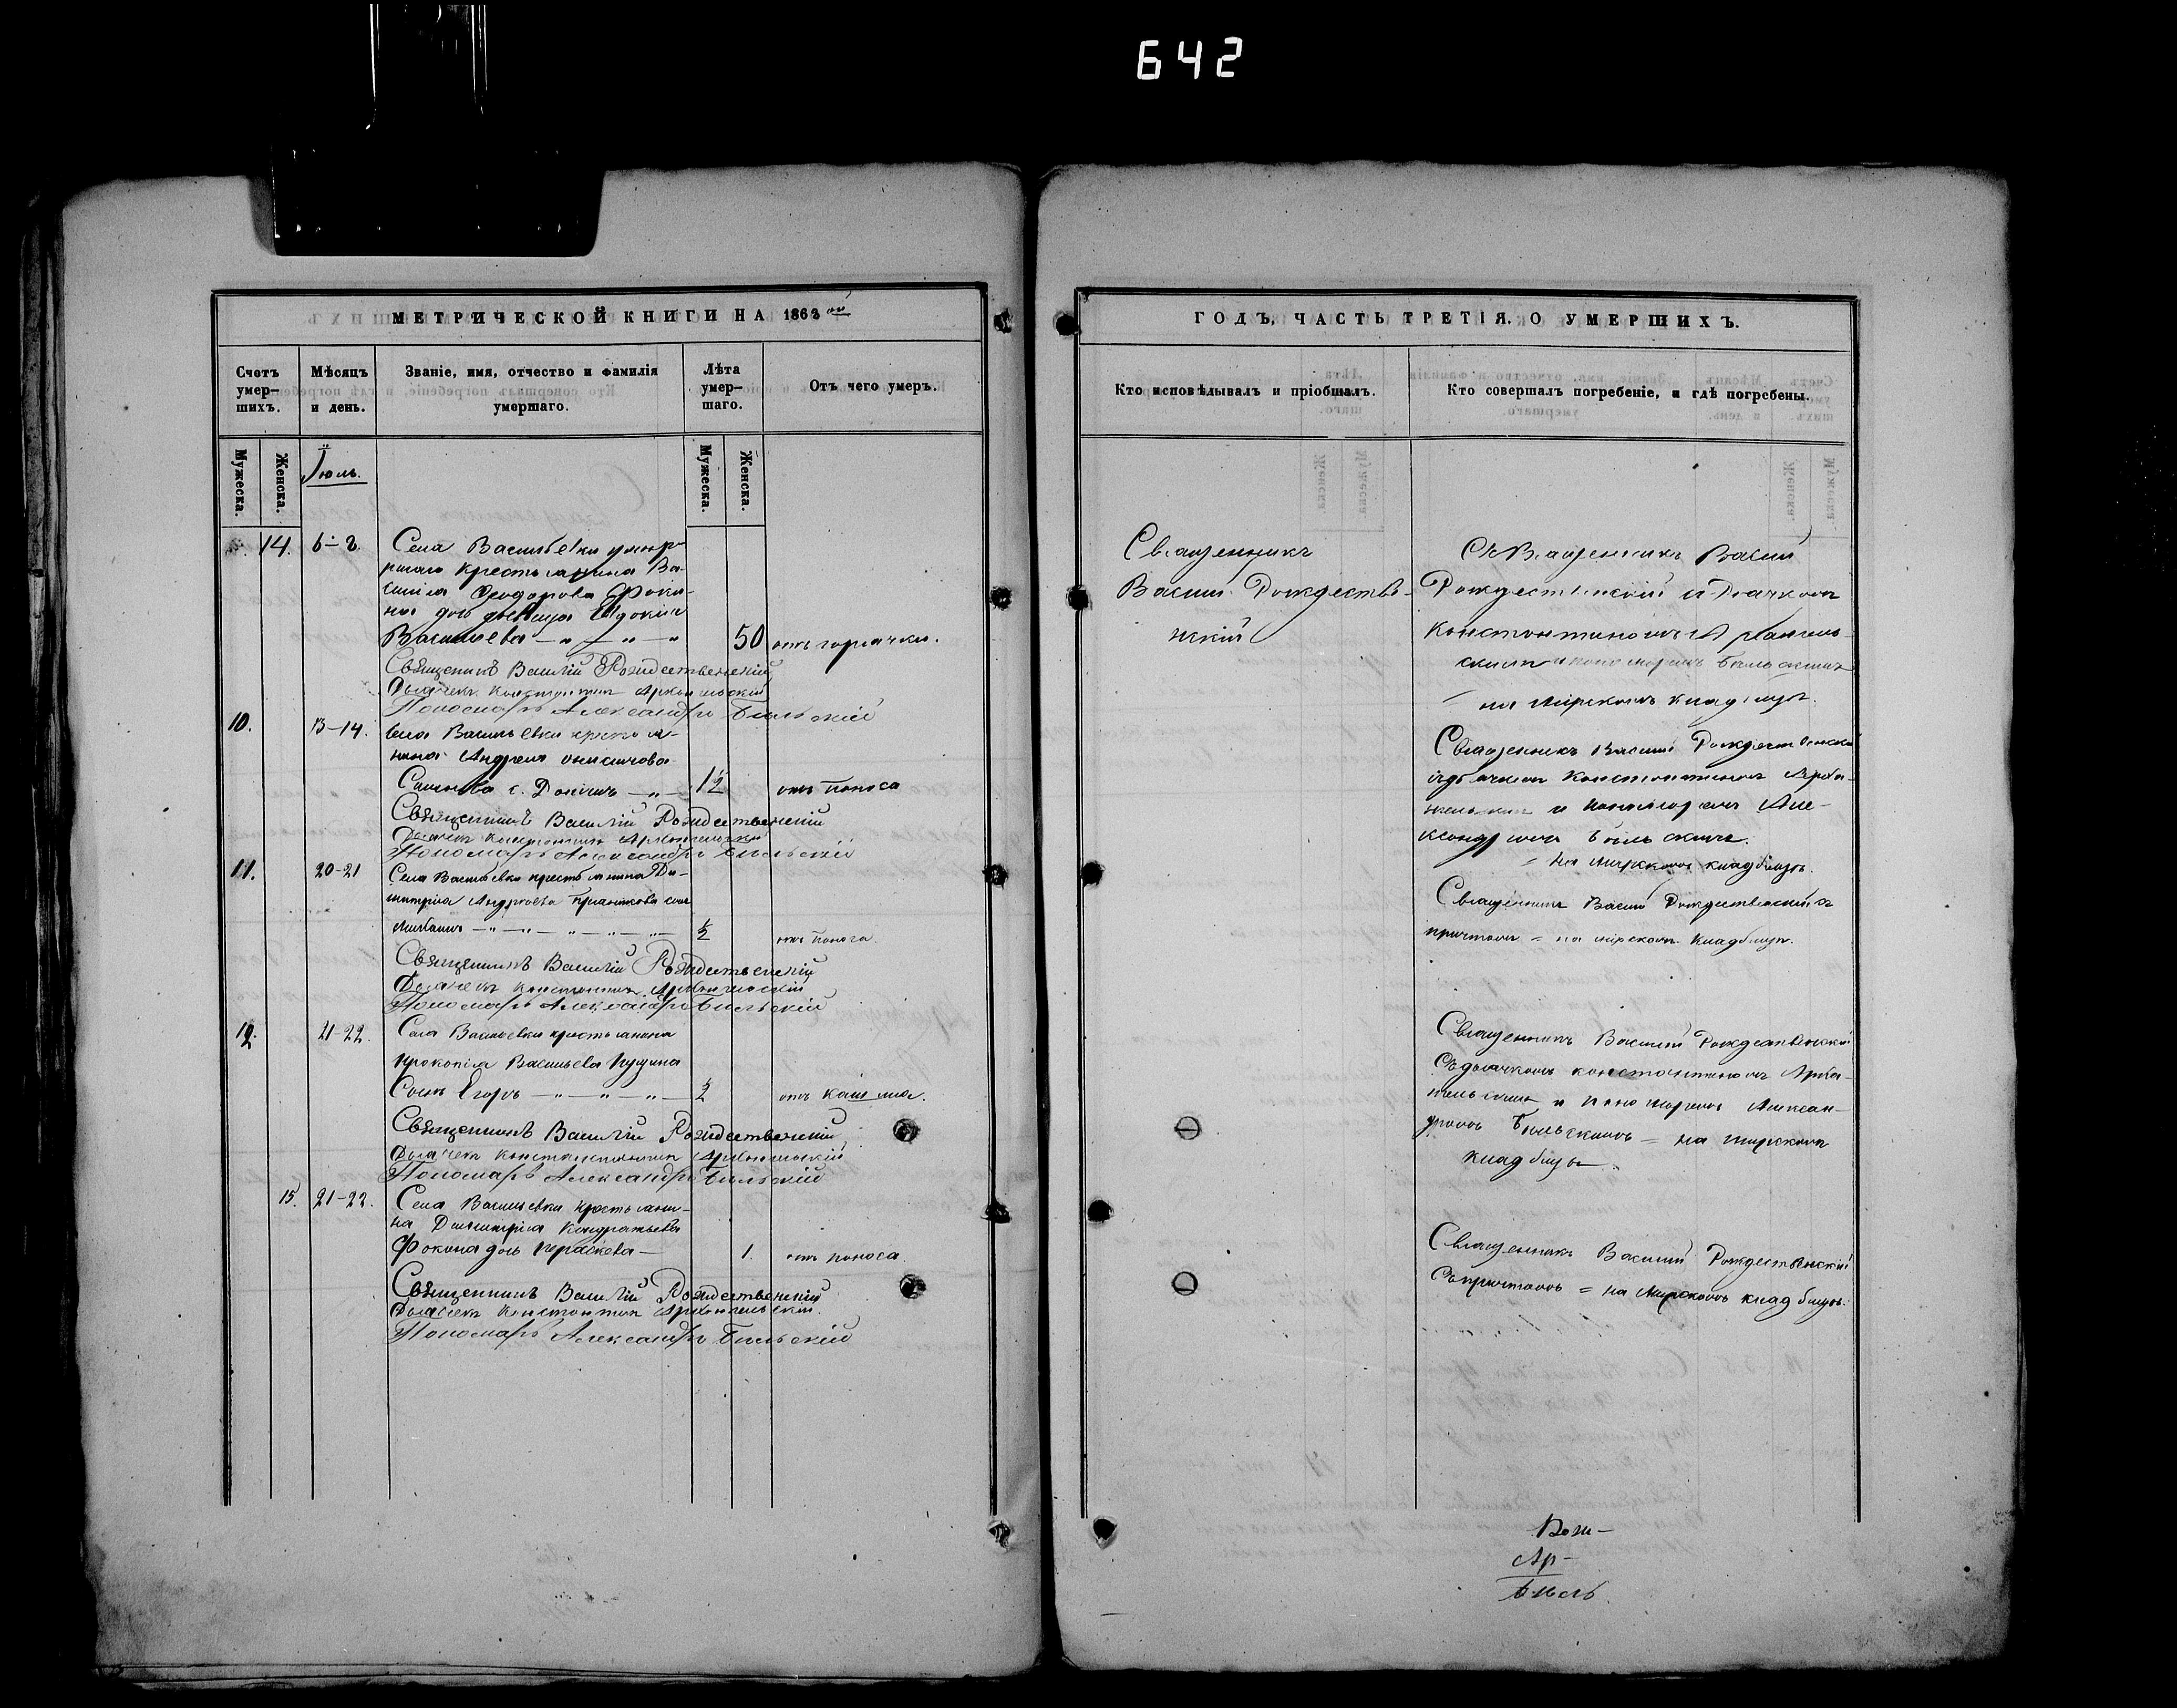 642
МЕТРИЧЕСКОЙ КНИГИ НА 1863 ой
Счетъ умер-шихъ.
Мѣсяцъ и день.
Званіе, имя, отчество и фамилія умершаго.
Лѣта умер-шаго.
Отъ чего умеръ.
Мужеска.
Женска.
Іюль.
Мужеска.
Женска.
14. 6-8. Села Васильевки умер-
ршаго крестьянина Ва-
силія Ѳеодорова Фоки-
на дочь девица Евдокія
Васильева 50 отъ горячки.
Священникъ Василій Рождественскій
Дьячекъ Константинъ Архангельскій
Пономарь Александръ Бѣльскій
10. 13-14. Села Васильевки крестья-
нина Андрея Онисимова
с. 1½ отъ поноса
Священникъ Василій Рождественскій
Дьячекъ Константинъ Архангельскій
Пономарь Александръ Бѣльскій
11. 20-21 Села Васильевки крестьянина Ди-
митрія Андреева сынъ
½ отъ поноса.
Священникъ Василій Рождественскій
Дьячекъ Константинъ Архангельскій
Пономарь Александръ Бѣльскій
12. 21-22. Села Васильевки крестьянина
Прокопія Васильева
Сынъ Егоръ ½ отъ кашля.
Священникъ Василій Рождественскій
Дьячекъ Константинъ Архангельскій
Пономарь Александръ Бѣльскій
15. 21-22. Села Васильевки крестьяни-
на Димитрія Кондратьева
Фокина дочь Параскева 1. отъ поноса.
Священникъ Василій Рождественскій
Дьячекъ Константинъ Архангельскій.
Пономарь Александръ Бѣльскій
ГОДЪ, ЧАСТЬ ТРЕТІЯ. О УМЕРШИХЪ.
Кто исповѣдывалъ и пріобщалъ.
Кто совершалъ погребеніе, и гдѣ погребены.
Священникъ
Василій Рождествен-
нскій
Священникъ Василій
Рождественскій и дьячкомъ
Константиномъ Архангель-
скимъ и пономаремъ Бѣльскимъ
на мирскомъ кладбищѣ.
Священникъ Василій Рождественскій
съ дьячкомъ Константиномъ Архан-
гельскимъ и пономаремъ Але-
ксандромъ Бѣльскимъ.
= на мирскомъ кладбищѣ.
Священникъ Василій Рождественскій съ
причтомъ = на мирскомъ кладбищѣ.
Священникъ Василій Рождественскій
Съ дьячкомъ Константиномъ Архан-
гельскимъ и пономаремъ Алексан-
дромъ Бѣльскимъ = на мирскомъ
кладбищѣ.
Священникъ Василій Рождественскій
Съ причтомъ = на мирскомъ кладбищѣ.
Ар-
Бѣль